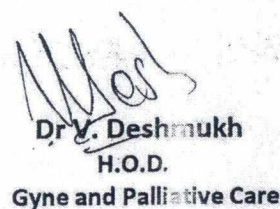 Dr V. Deshmukh
H.O.D.
Gyne and Palliative Care